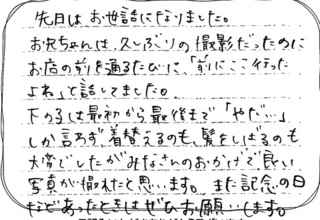 先日は お世話になりました。
お兄ちゃんは、久しぶりの撮影だったのに
お店の前を通るたびに、「前にここ行った
よね」と話してました。
下の子は最初から最後まで「やだ…」
しか言わず着替えるのも、髪をしばるのも
大変でしたがみなさんのおかげで良い
写真が撮れたと思います。また記念の日
などあったときはぜひお願いします。